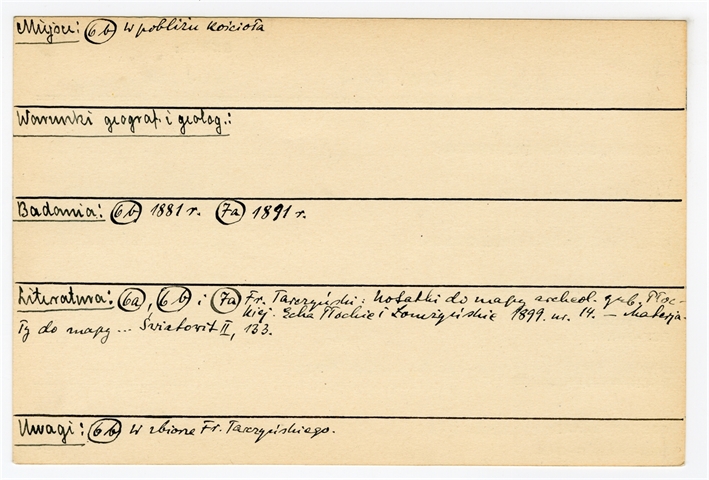 Miejsce: (6b) w pobliżu kościoła
Warunki geograf. i geolog.:
Badania: (6b) 1881 r. (7a) 1891 r.
Literatura: (6a), (6b) i (7a) Fr. Tarczyński: Notatki do mapy archeol. gub. Płoc-
kiej. Echa Płockie i Łomżyńskie 1899. nr. 14. – Materja-
ły do mapy ... Światowit II, 133.
Uwagi: (6b) w zbiorze Fr. Tarczyńskiego.